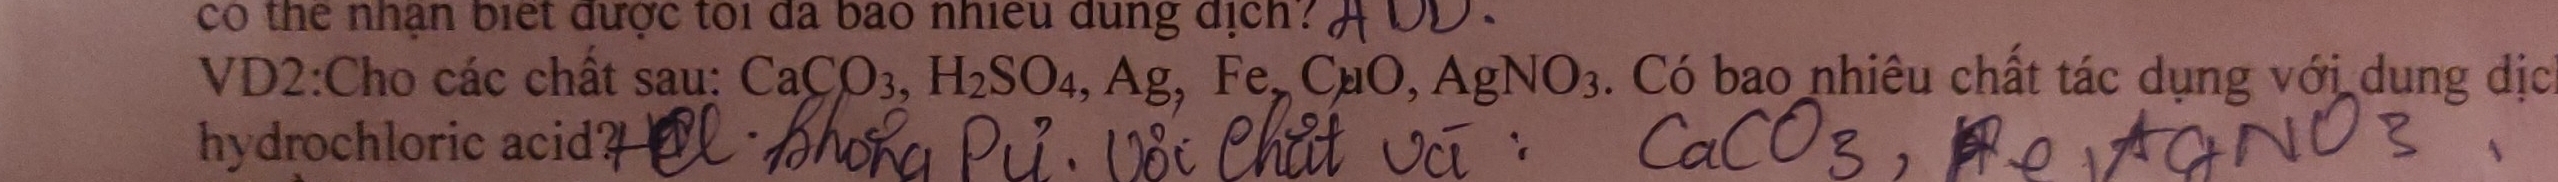 có thể nhận biết được tối đa bao nhiêu dung dịch?
VD2:Cho các chất sau: CaCO3, H2SO4, Ag, Fe, CuO, AgNO3. Có bao nhiêu chất tác dụng với dung dịc
hydrochloric acid? HCl. không PƯ. Với Chất và : CaCO3, Fe, AgNO3,